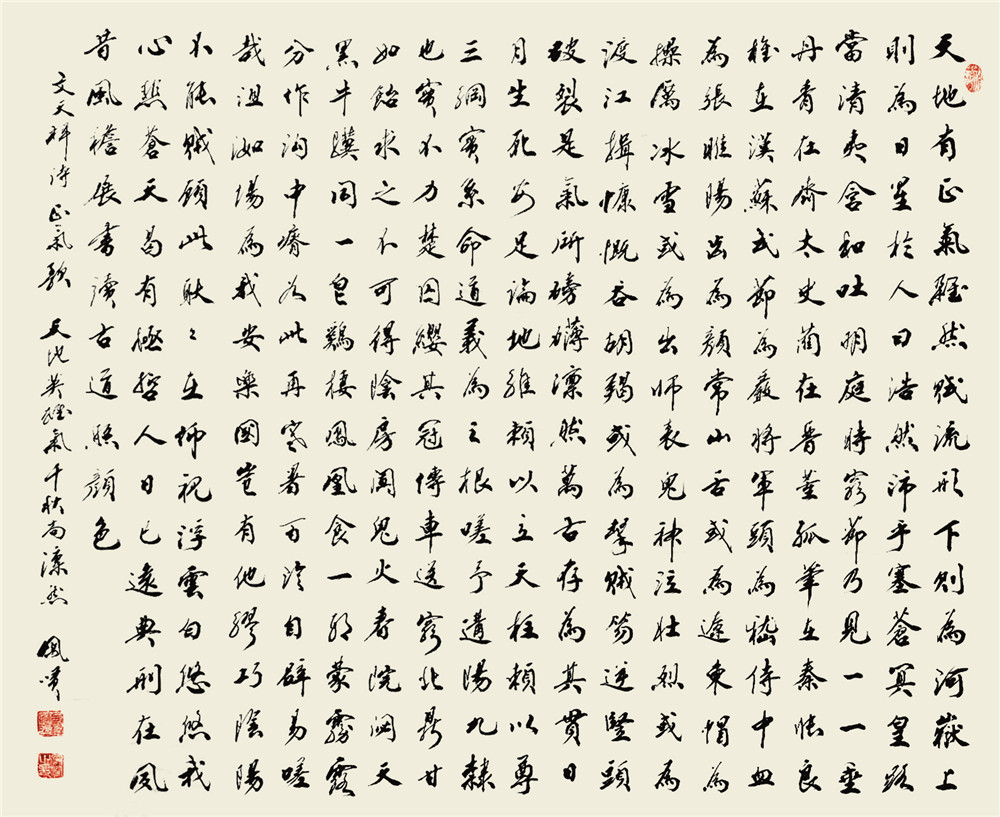 天地有正氣雜然賦流形下則為河嶽上
則為日星於人曰浩然沛乎塞蒼冥皇路
當清夷含和吐明庭時窮節乃見一一垂
丹青在齊太史簡在晉董狐筆在秦張良
椎在漢蘇武節為嚴將軍頭為嵇侍中血
為張睢陽齒為顏常山舌或為遼東帽為
操厲冰雪或為出師表鬼神泣壯烈或為
渡江楫慷慨吞胡羯或為擊賊笏逆豎頭
破裂是氣所磅礴凜然萬古存為其貫日
月生死安足論地維賴以立天柱賴以尊
三綱實系命道義為之根嗟予遘陽九隸
也實不力楚囚纓其冠傳車送窮北鼎甘
如飴求之不可得陰房闃鬼火春院閟天
黑牛驥同一皂鷄棲鳳凰食一朝蒙霧露
分作溝中瘠如此再寒暑百沴自辟易嗟
哉沮洳場為我安樂國豈有他繆巧陰陽
不能賊顧此耿々在仰視浮雲白悠悠我
心愁蒼天曷有極哲人日已遠典刑在夙
昔風簷展書讀古道照顏色
文天祥詩正氣歌 天地英雄氣千秋尚凜然